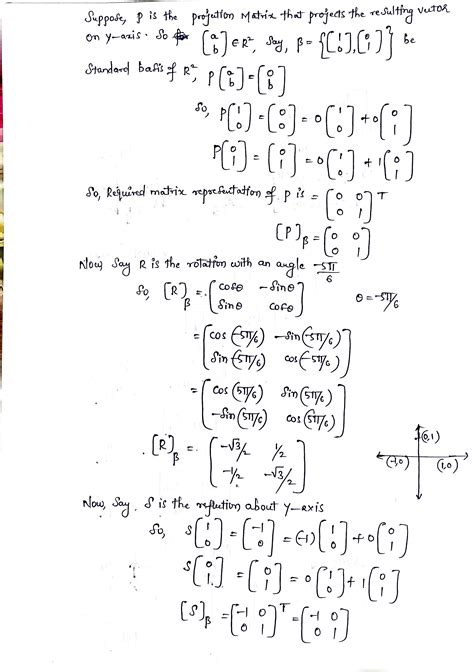 Suppose, P is the projection Matrix that projects the resulting vector
on y-axis. So [a b] ∈ R², Say, β = {[1 0], [0 1]} be
Standard basis of R², P[a b] = [0 b]
So, P[1 0] = [0 0] = 0[1 0] + 0[0 1]
P[0 1] = [0 1] = 0[1 0] + 1[0 1]
So, Required matrix representation of P is = [0 0 0 1]ᵀ
[P]β = [0 0 0 1]
Now, Say R is the rotation with an angle -5π/6
So, [R]β = [cosθ -sinθ sinθ cosθ] θ = -5π/6
= [cos(-5π/6) -sin(-5π/6) sin(-5π/6) cos(-5π/6)]
= [cos(5π/6) sin(5π/6) -sin(5π/6) cos(5π/6)]
[R]β = [-√3/2 1/2 -1/2 -√3/2]
(0,1)
(-1,0) (1,0)
Now, Say, S is the reflution about y-axis
So, S[1 0] = [-1 0] = (-1)[1 0] + 0[0 1]
S[0 1] = [0 1] = 0[1 0] + 1[0 1]
[S]β = [-1 0 0 1]ᵀ = [-1 0 0 1]